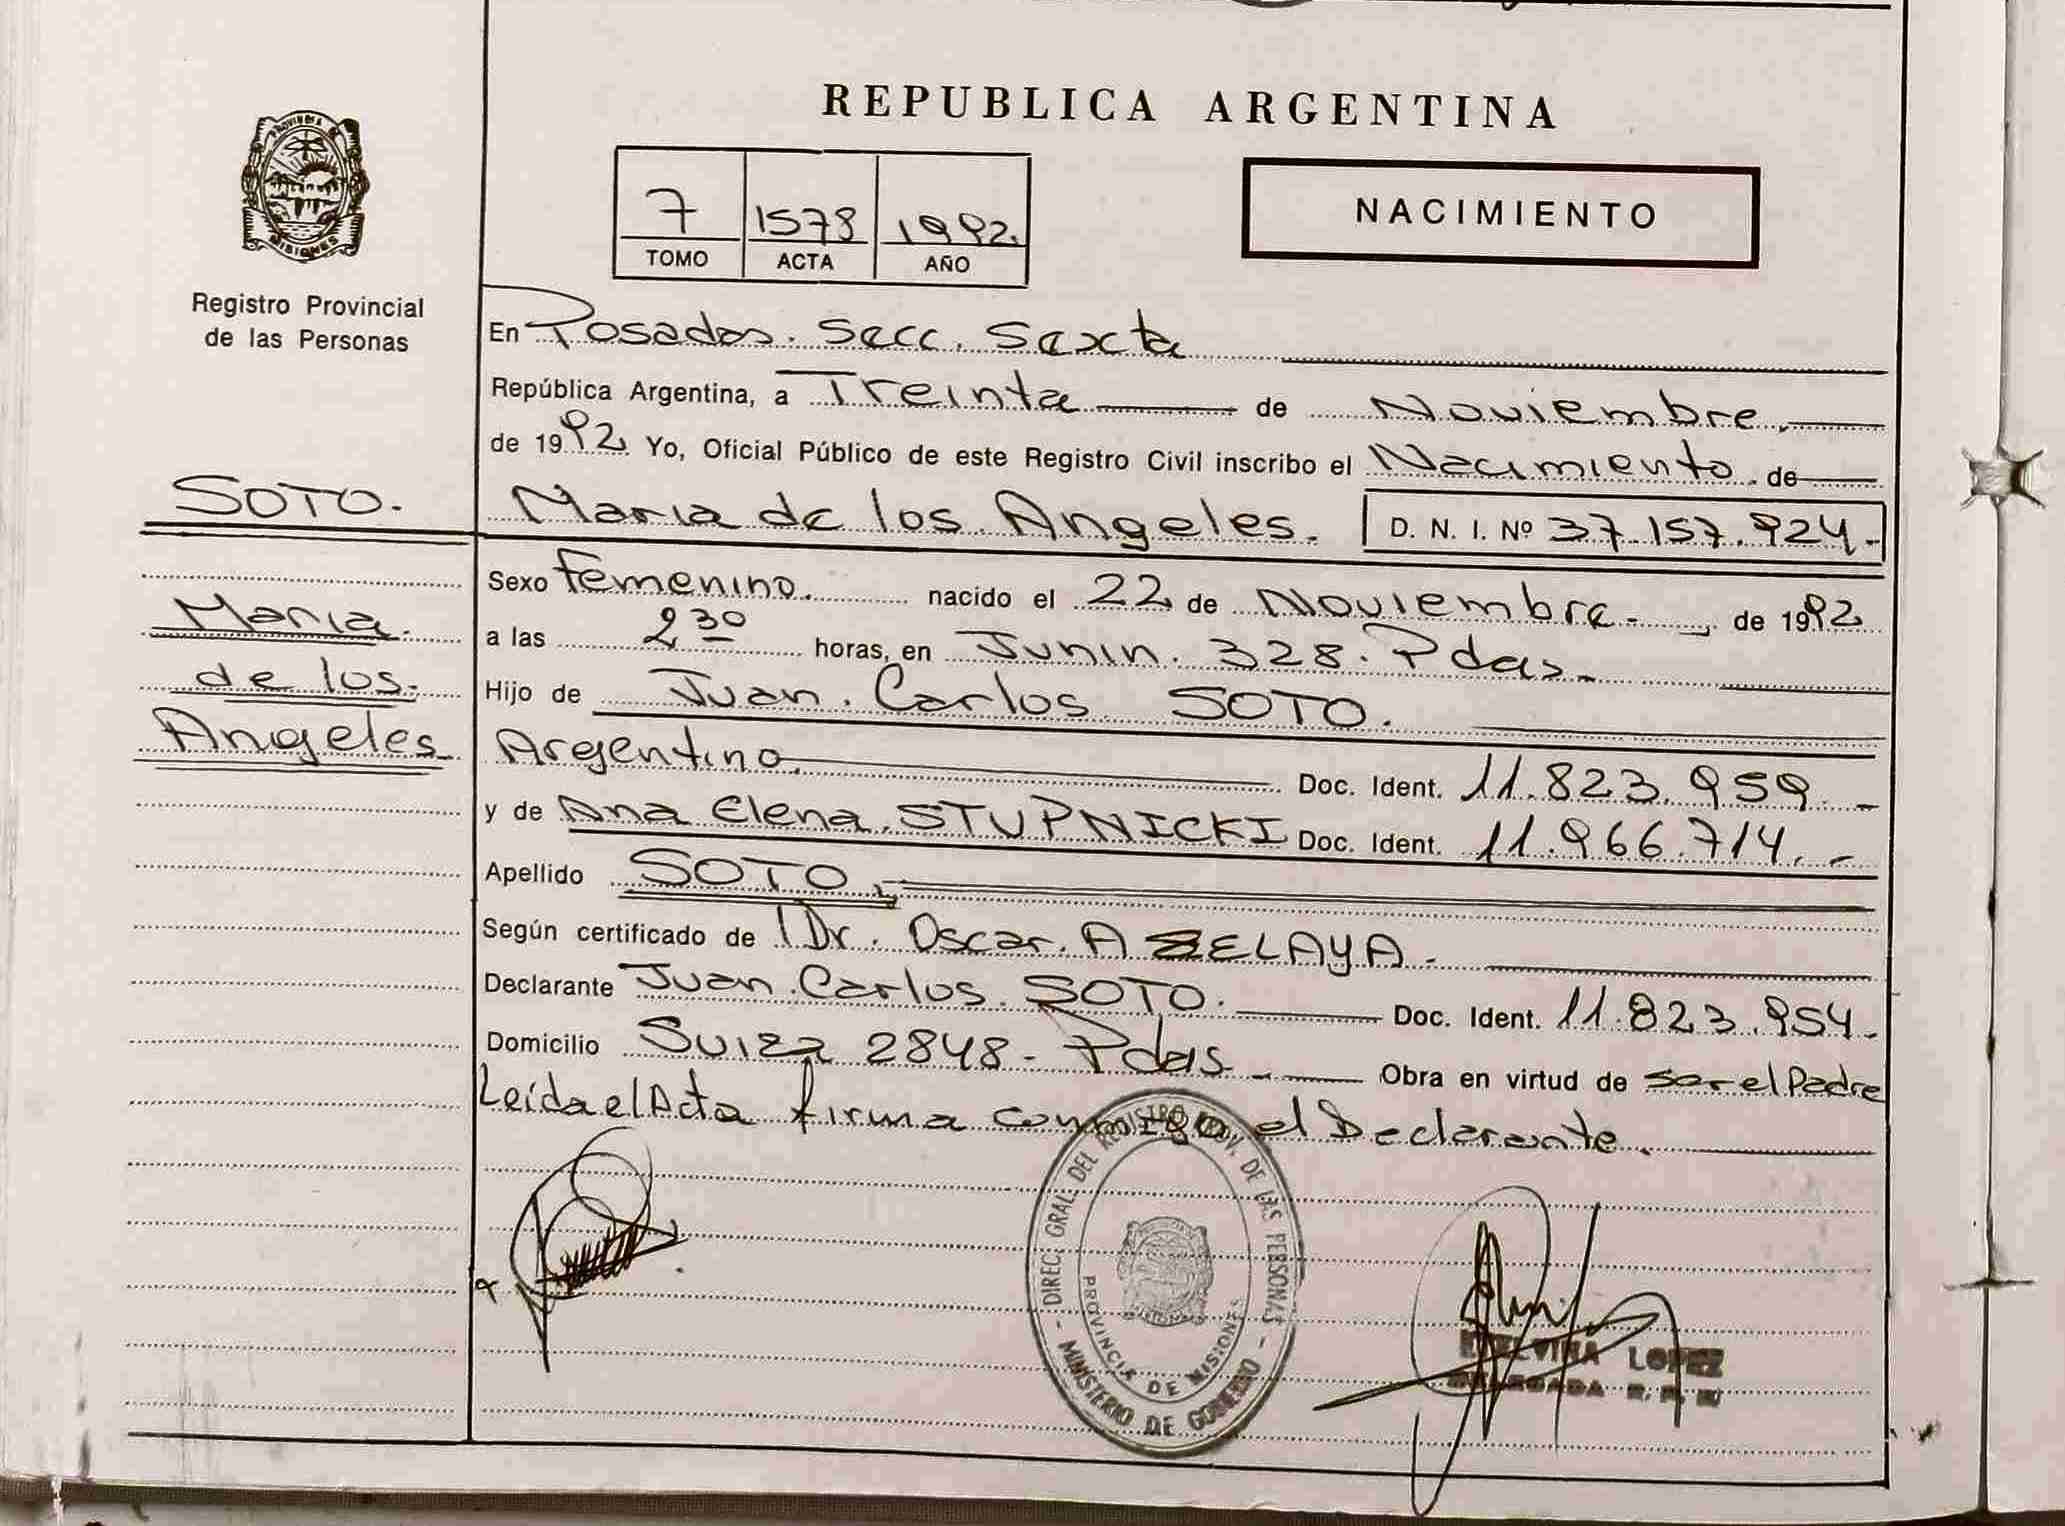 REPUBLICA ARGENTINA
PROVINCIA DE
MISIONES
Registro Provincial
de las Personas
7 1578 1992
TOMO ACTA AÑO
NACIMIENTO
En Posadas. Secc. Sexta
República Argentina, a Treinta de Noviembre
de 1992 Yo, Oficial Público de este Registro Civil inscribo el Nacimiento de
SOTO.
Maria de los Angeles. D. N. I. Nº 37.157.924-
Maria
de los
Angeles
Sexo Femenino. nacido el 22 de Noviembre de 1992
a las 2 30 horas, en Junin. 328. Pdas-
Hijo de Juan Carlos SOTO.
Argentino. Doc. Ident. 11.823.959.-
y de Ana Elena STUPNICKI Doc. Ident. 11.966.714.-
Apellido SOTO
Según certificado de Dr. Oscar. A ZELAYA.
Declarante Juan Carlos SOTO. Doc. Ident. 11.823.954-
Domicilio Suiza 2848- Pdas Obra en virtud de ser el Padre
Leída el Acta firma conmigo el Declarante.
DIREC. GRAL. DEL REGISTRO PROV. DE LAS PERSONAS
PROVINCIA DE MISIONES
MINISTERIO DE GOBIERNO
LOPEZ